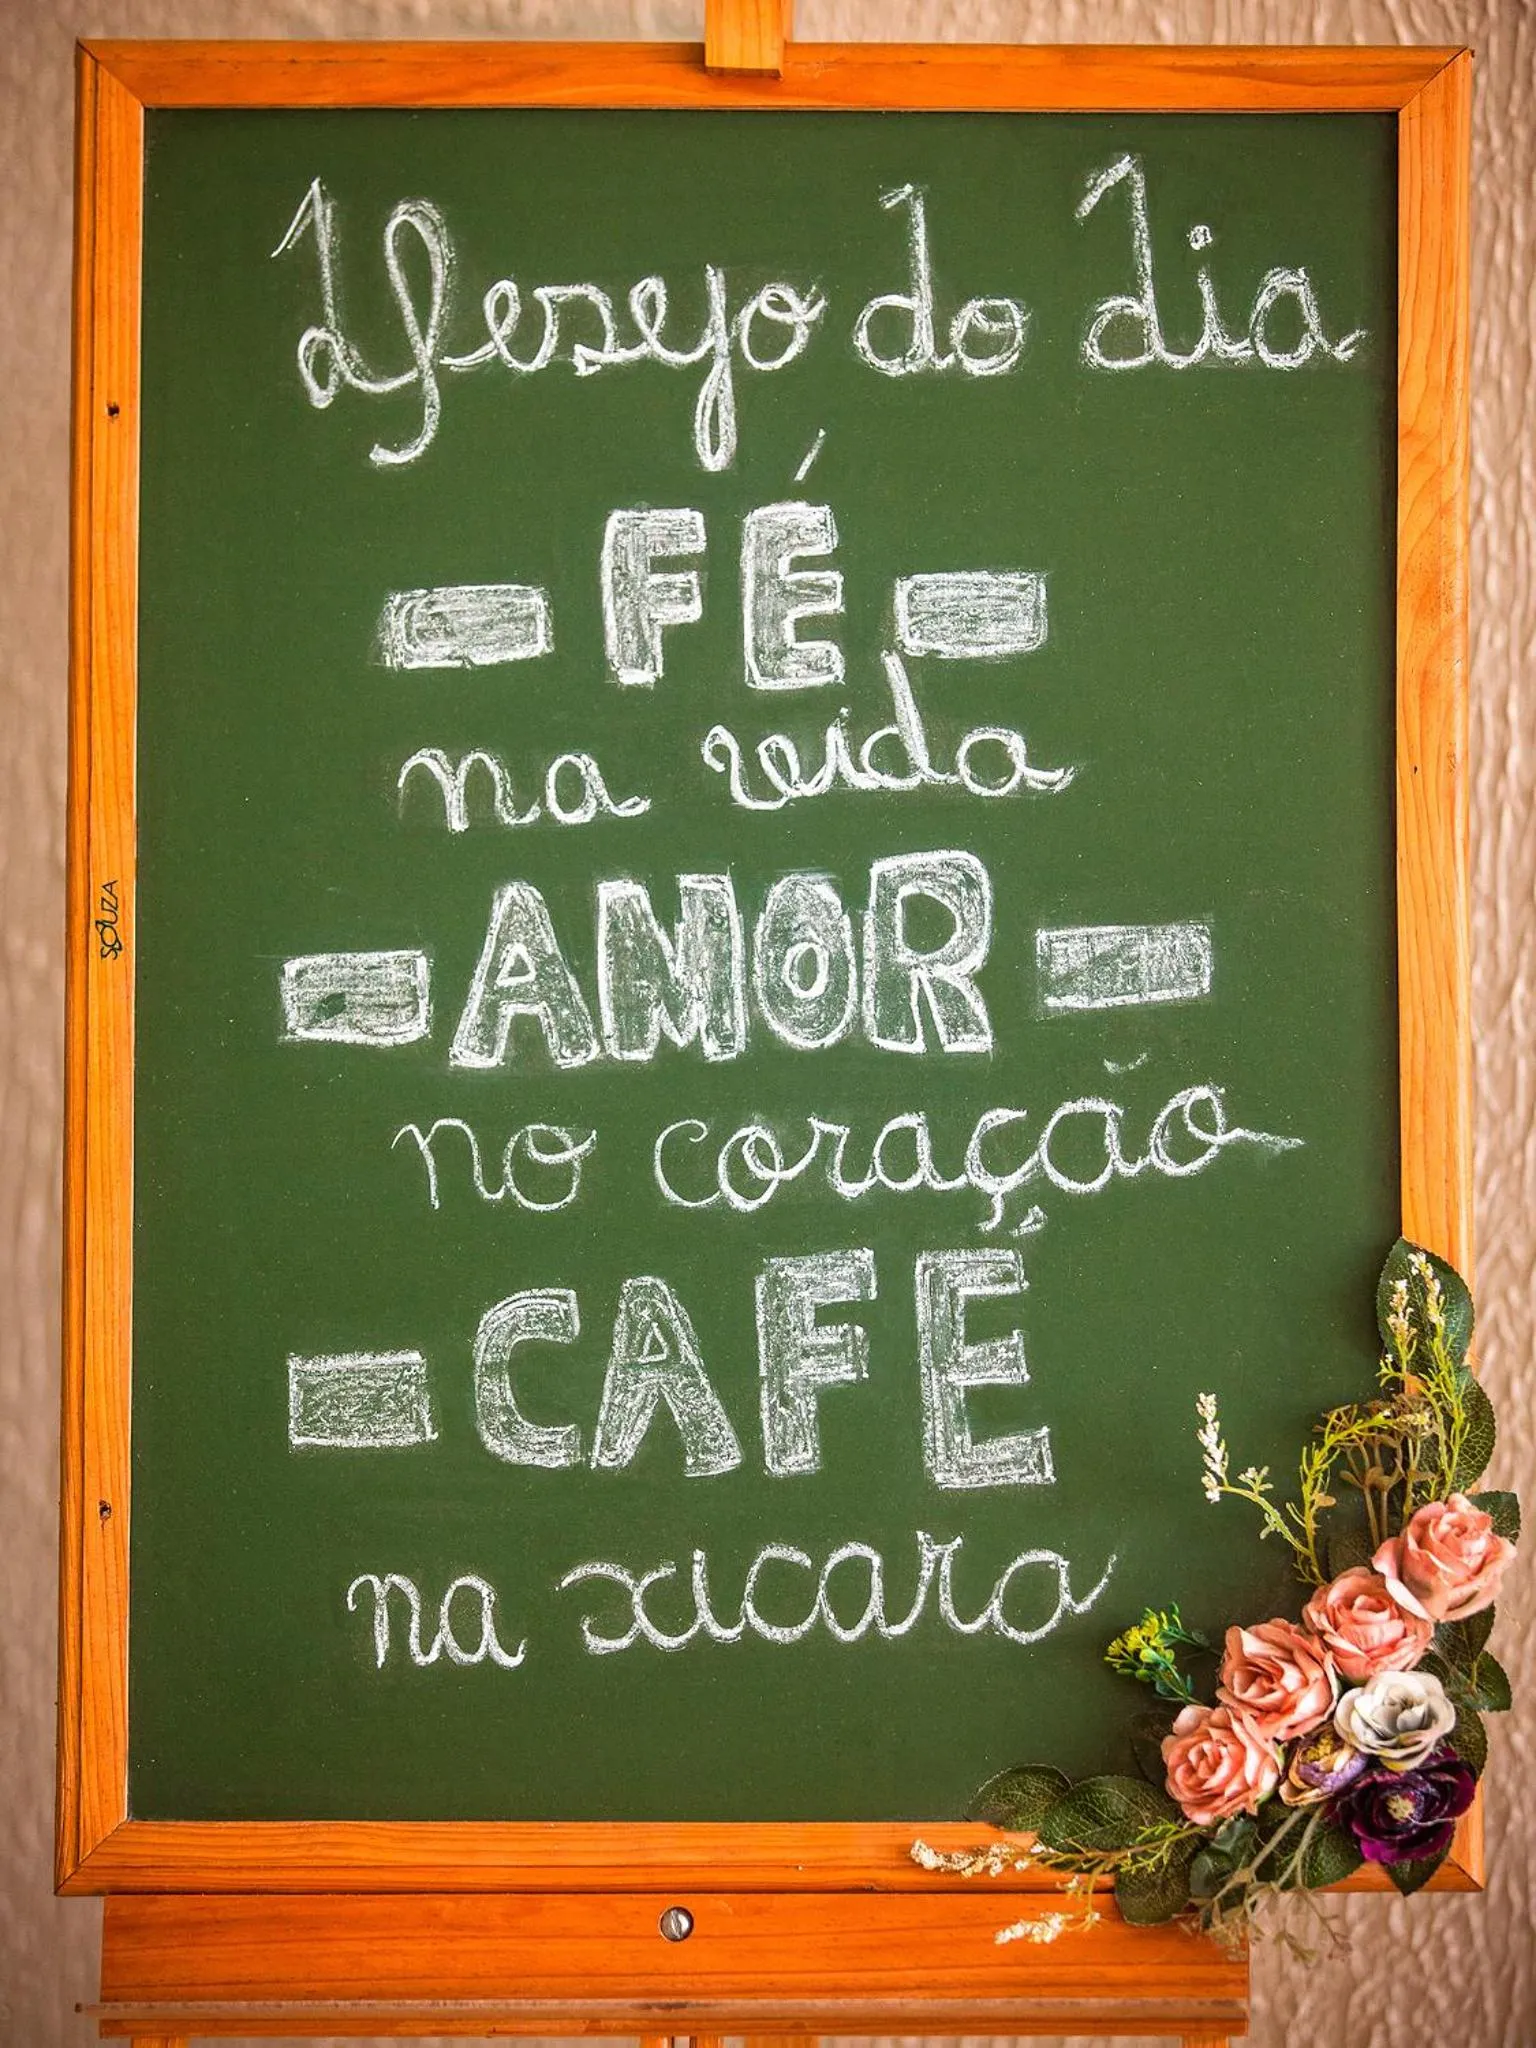 Desejo do dia
- FÉ -
na vida
- AMOR -
no coração
- CAFÉ
na xicara
SOUZA